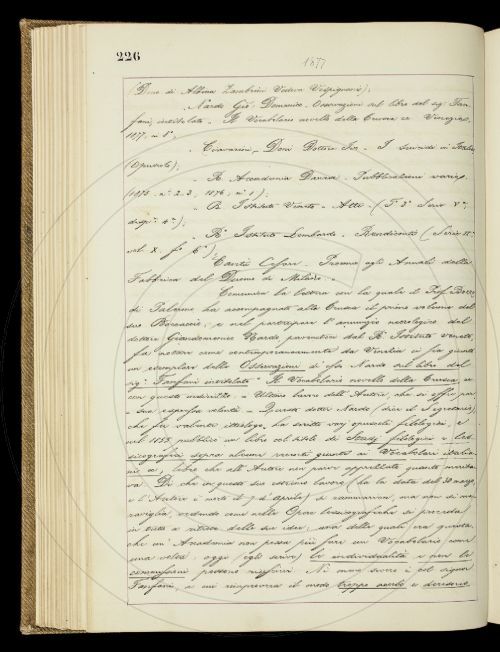 226
1877
(Dono di Albina Zambrini Vedova Vespignani);
Nardo Gio: Domenico. Osservazioni sul libro del sig: Fan-
fani, intitolato. Il Vocabolario novello della Crusca ec Venezia,
1877, in 8°,
Dono Dottore I suicidi in
(Opuscolo);
R. Accademia Pubblicazioni varie,
(1875. n° 2. 3., 1876, n° 1);
R. Istituto Veneto. Atti. (T. 3° Serie V°;
disp: 4°);
R° Istituto Lombardo. Rendiconti (Serie II°
vol. X. f° 6°);
Cantù Cesare. Proemio agli Annali della
Fabbrica del Duomo di Milano.
Comunica la lettera con la quale il Prof.
di Palermo ha accompagnato alla Crusca il primo volume del
suo e nel partecipare l'annunzio necrologico del
dottor Giandomenico Nardo pervenutoci dal R° Istituto veneto,
fa notare come contemporaneamente da Venezia ci sia giunto
un esemplare delle Osservazioni di esso Nardo sul libro del
sig: Fanfani intitolato "Il Vocabolario novello della Crusca, ec
con questo indirizzo. - Ultimo lavoro dell'Autore, che si offre per
sua espressa volontà. - Questo dottor Nardo (dice il Segretario)
che fu valente ittiologo, ha scritto vari opuscoli filologici, e
nel 1855 pubblicò un libro col titolo di Studj filologici e les-
sicografici sopra alcune
ne ec, libro che all'Autore non parve apprezzato quanto merita-
va. Di che in questo suo estremo lavoro (ha la data del 30 marzo,
e l'Autore è morto il 7 d'aprile) si rammarica, ma non si me-
raviglia, vedendo come nelle Opere lessicografiche si proceda
in tutto a ritroso delle sue idee; una delle quali era questa,
che un'Accademia non possa più fare un Vocabolario, come
una volta; oggi (egli scrive) le individualità e non le
commissioni possono riuscirvi. Nè meno severo è col signor
Fanfani, a cui rimprovera il modo troppo acerbo e derisorio